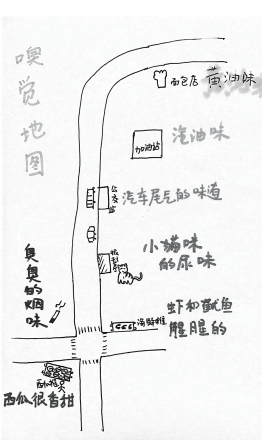 嗅觉地图
面包店
黄油味
加油站
汽油味
公交站
汽车尾气的味道
小猫味
的尿味
臭臭的烟味
海鲜摊
虾和鱿鱼
腥腥的
西瓜摊
西瓜很香甜